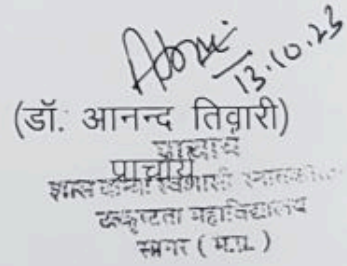 13.10.23
(डॉ. आनन्द तिवारी)
प्राचार्य
प्राचार्य
स्वशासी
उत्कृष्टता महाविद्यालय
सागर ( म.प्र. )